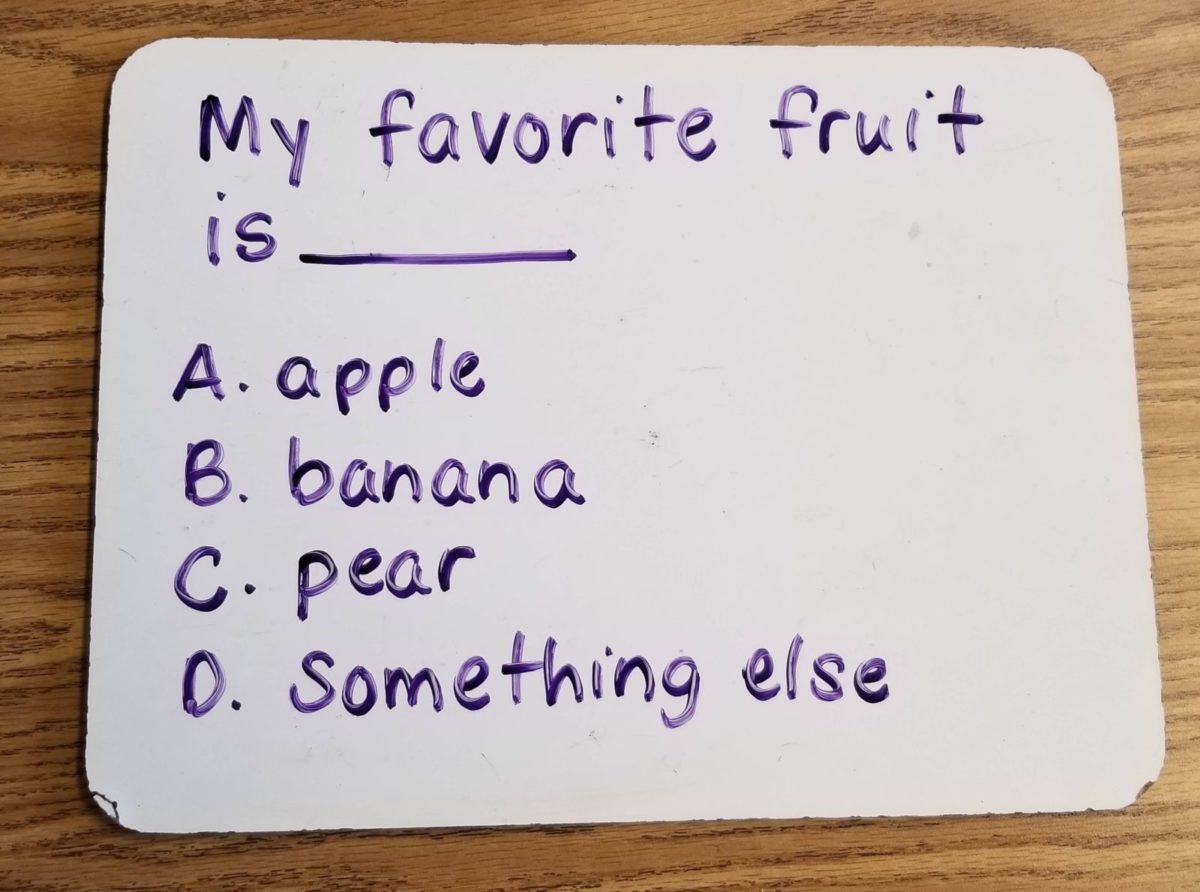 My favorite fruit
is ________
A. apple
B. banana
C. pear
D. Something else